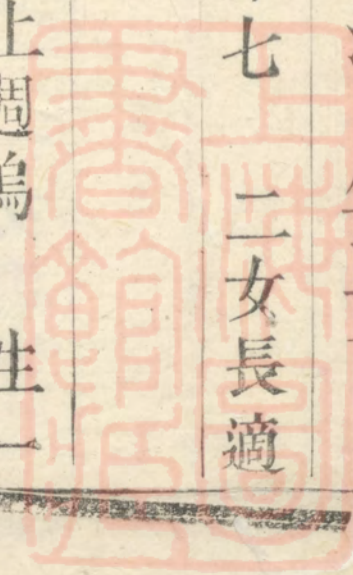 七 二女長適
上週塢 生一
上海圖
書館藏